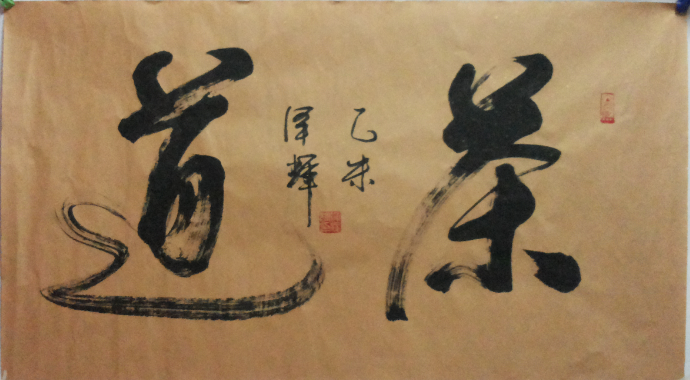 茶道
乙未
泽辉